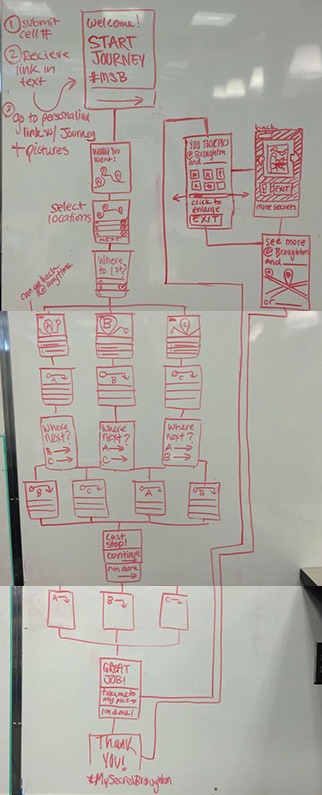 ① submit
cell #
② Recieve
link in
text
③ Go to personalized
link w/ Journey
+ pictures
Welcome!
START
JOURNEY
#MSB
Would You
went?
select
locations
NEXT
Where
to 1st?
can go back
@ anytime
A
B
C
A
B
C
Where
next?
B
C
Where
next?
A
C
Where
next?
A
B
B
C
A
B
Last
stop!
continue
I'm done
A
B
C
GREAT
JOB!
take me to
my pics
I'm done!
THANK
YOU!
#MySecretBroughton
YOU TOOK PICS
@ Broughton
and
click to
enlarge
EXIT
back
EXIT
more secrets
see more
@ Broughton
and
or